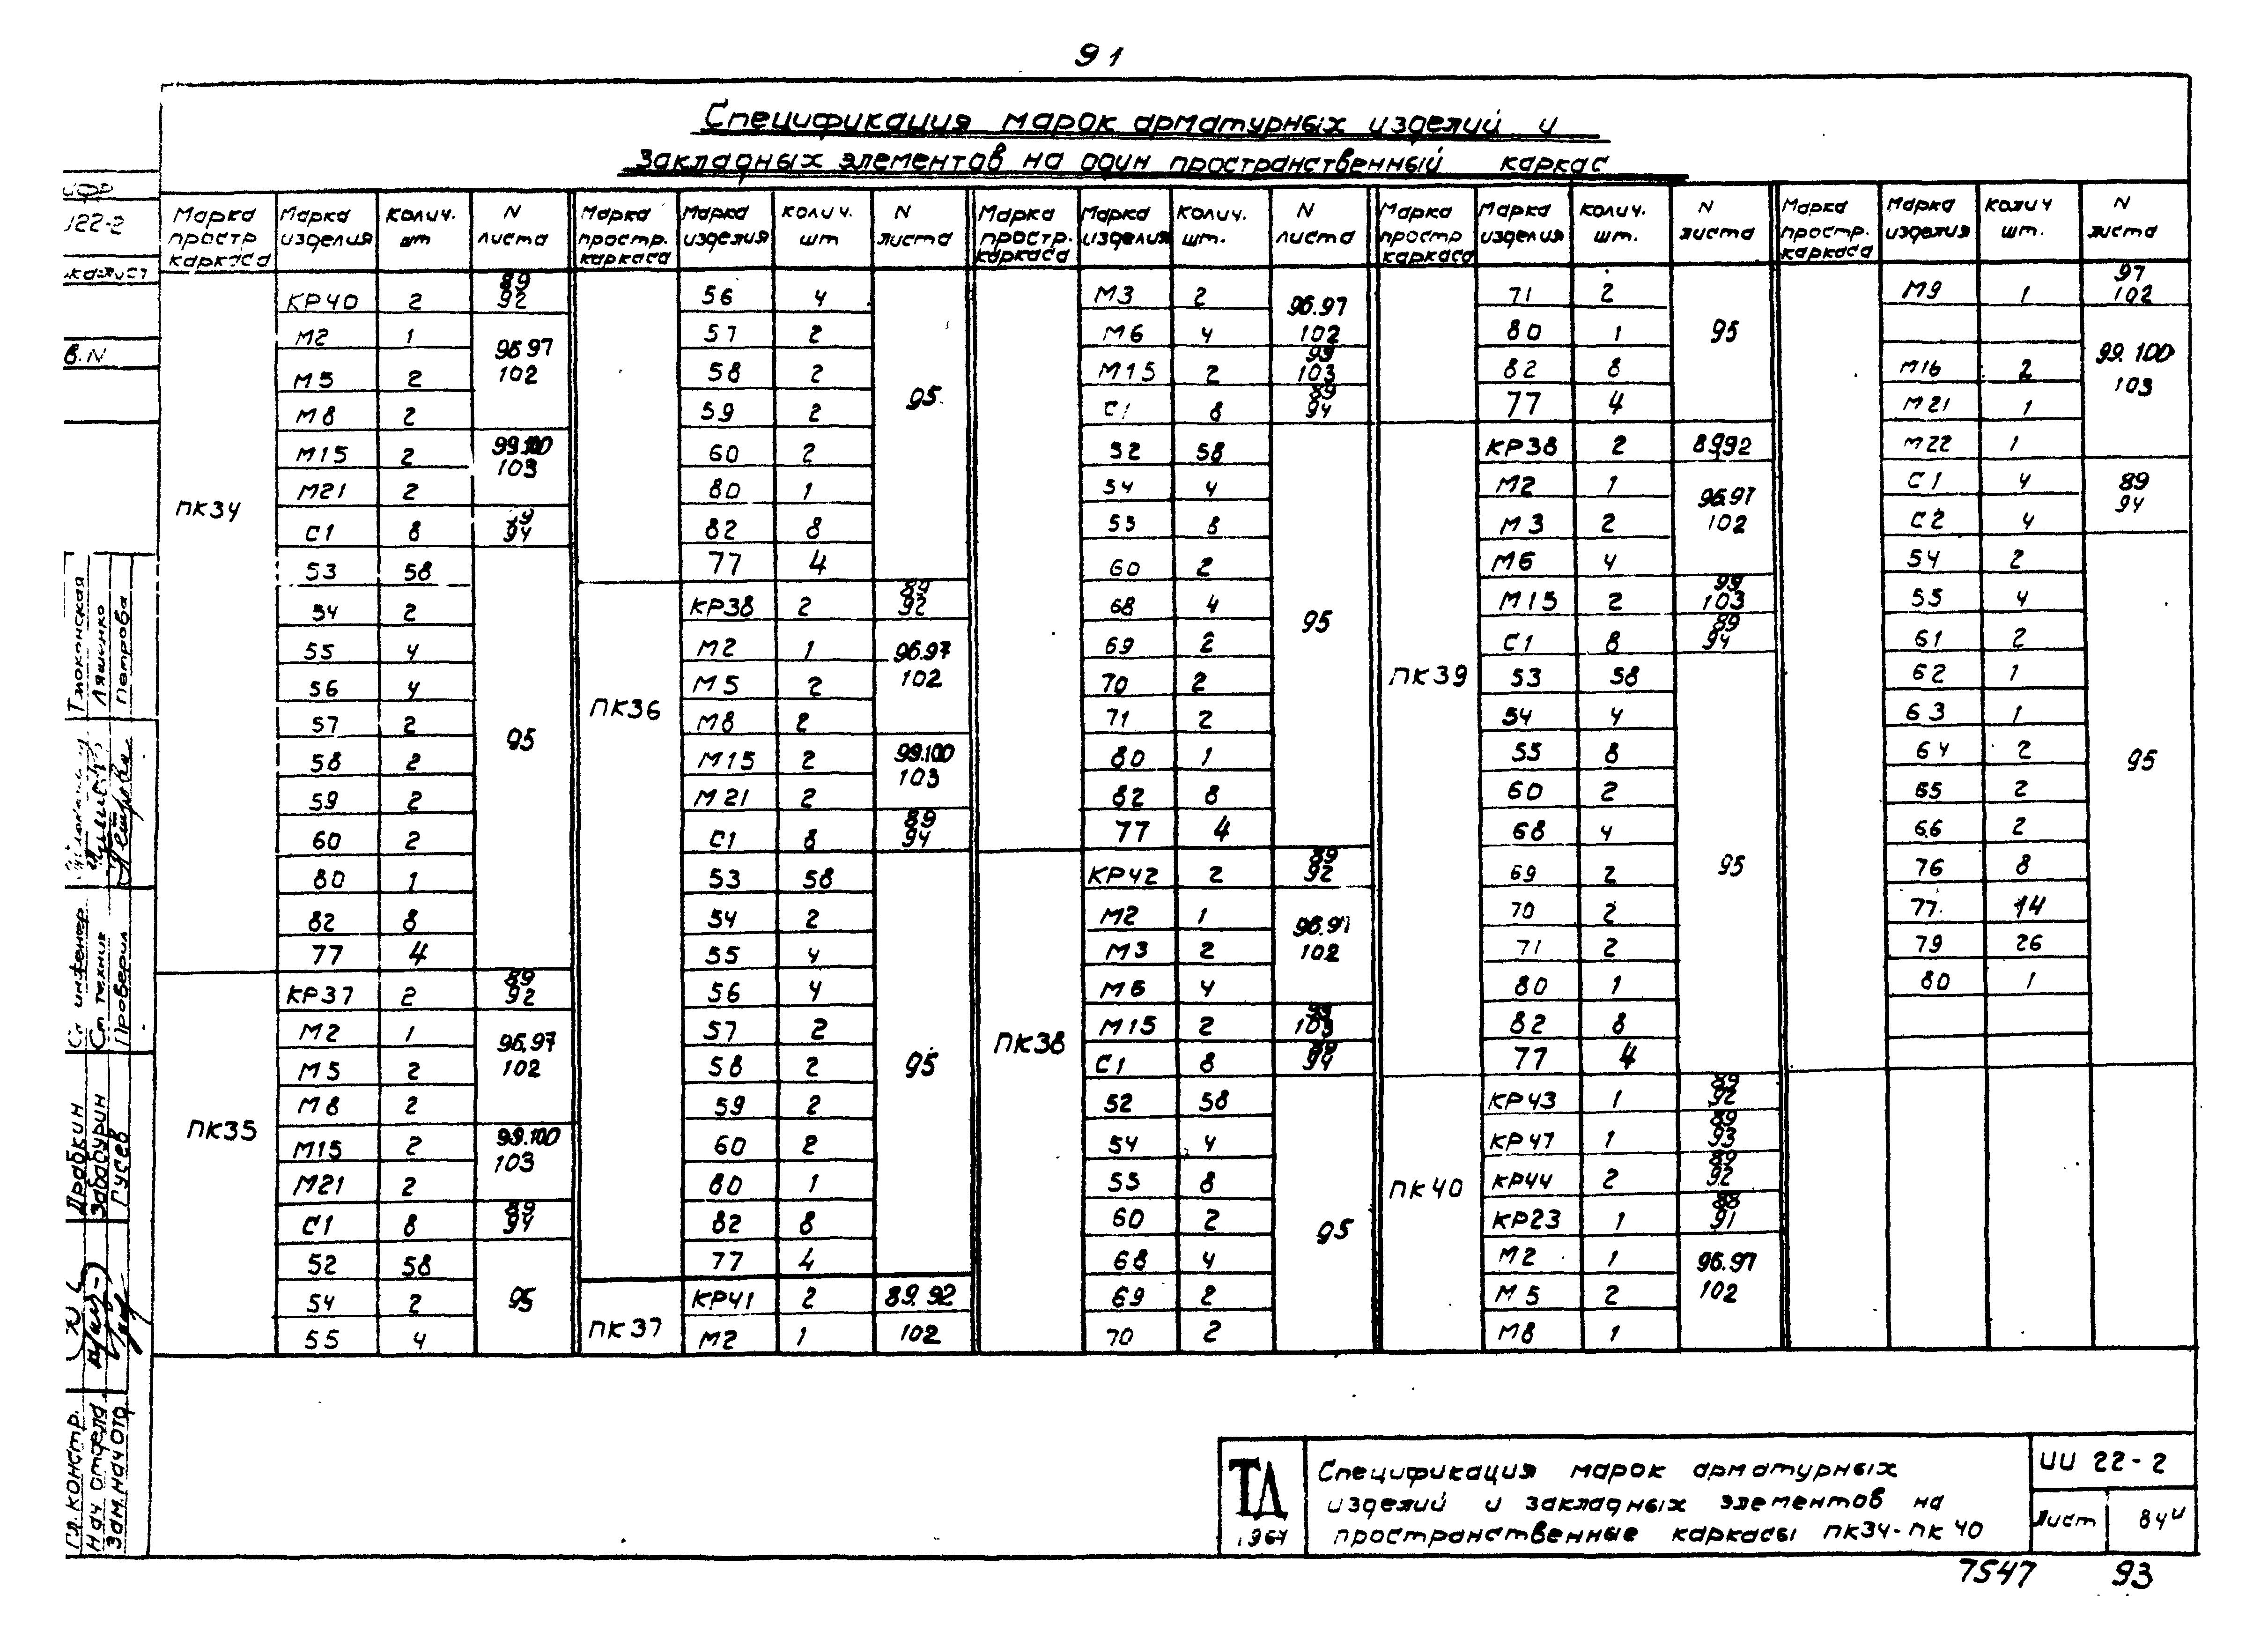 91
Спецификация марок арматурных изделий и
закладных элементов на один пространственный каркас
Марка простр каркаса | Марка изделия | Колич. шт | N листа
ПК34 | КР40 | 2 | 89 92
М2 | 1 | 96.97 102
М5 | 2
М8 | 2
М15 | 2 | 99.100 103
М21 | 2
С1 | 8 | 89 94
53 | 58 | 95
54 | 2
55 | 4
56 | 4
57 | 2
58 | 2
59 | 2
60 | 2
80 | 1
82 | 8
77 | 4
ПК35 | КР37 | 2 | 89 92
М2 | 1 | 96.97 102
М5 | 2
М8 | 2
М15 | 2 | 99.100 103
М21 | 2
С1 | 8 | 89 94
52 | 58 | 95
54 | 2
55 | 4
Марка простр. каркаса | Марка изделия | Колич. шт | N листа
56 | 4 | 95
57 | 2
58 | 2
59 | 2
60 | 2
80 | 1
82 | 8
77 | 4
ПК36 | КР38 | 2 | 89 92
М2 | 1 | 96.97 102
М5 | 2
М8 | 2
М15 | 2 | 99.100 103
М21 | 2
С1 | 8 | 89 94
53 | 58 | 95
54 | 2
55 | 4
56 | 4
57 | 2
58 | 2
59 | 2
60 | 2
80 | 1
82 | 8
77 | 4
ПК37 | КР41 | 2 | 89.92
М2 | 1 | 102
Марка простр. каркаса | Марка изделия | Колич. шт. | N листа
М3 | 2 | 96.97 102
М6 | 4
М15 | 2 | 99 103
С1 | 8 | 89 94
52 | 58 | 95
54 | 4
55 | 8
60 | 2
68 | 4
69 | 2
70 | 2
71 | 2
80 | 1
82 | 8
77 | 4
ПК38 | КР42 | 2 | 89 92
М2 | 1 | 96.97 102
М3 | 2
М6 | 4
М15 | 2 | 99 103
С1 | 8 | 89 94
52 | 58 | 95
54 | 4
55 | 8
60 | 2
68 | 4
69 | 2
70 | 2
Марка простр каркаса | Марка изделия | Колич. шт. | N листа
71 | 2 | 95
80 | 1
82 | 8
77 | 4
ПК39 | КР38 | 2 | 89 92
М2 | 1 | 96.97 102
М3 | 2
М6 | 4
М15 | 2 | 99 103
С1 | 8 | 89 94
53 | 58 | 95
54 | 4
55 | 8
60 | 2
68 | 4
69 | 2
70 | 2
71 | 2
80 | 1
82 | 8
77 | 4
ПК40 | КР43 | 1 | 89 92
КР47 | 1 | 89 93
КР44 | 2 | 89 92
КР23 | 1 | 88 91
М2 | 1 | 96.97 102
М5 | 2
М8 | 1
Марка простр. каркаса | Марка изделия | Колич шт. | N листа
М9 | 1 | 97 102
М16 | 2 | 99.100 103
М21 | 1
М22 | 1
С1 | 4 | 89 94
С2 | 4
54 | 2 | 95
55 | 4
61 | 2
62 | 1
63 | 1
64 | 2
65 | 2
66 | 2
76 | 8
77 | 14
79 | 26
80 | 1
ТД
1964
Спецификация марок арматурных
изделий и закладных элементов на
пространственные каркасы ПК34-ПК40
ИИ 22-2
Лист 84и
7547 93
В.N
Гл. констр. Драбкин
Нач отдела Забабурин
Зам.нач отд Гусев
Ст инженер
Ст техник Ляшенко
Проверил Петрова